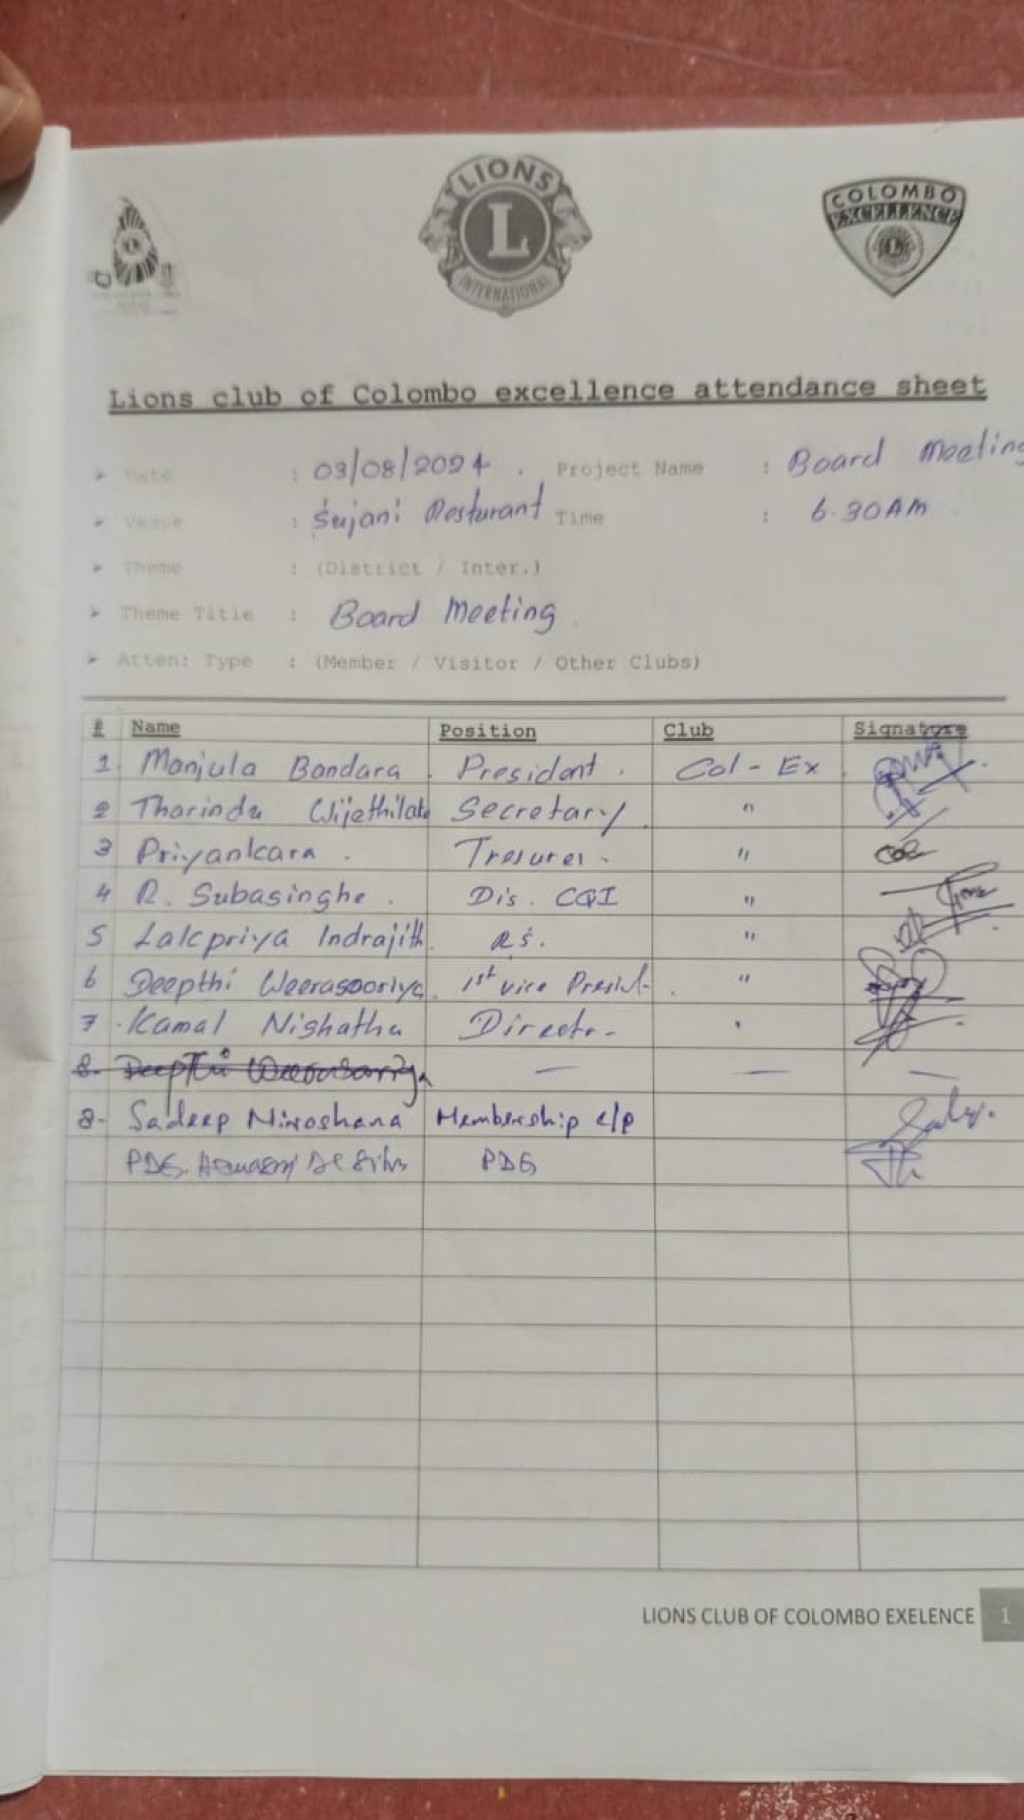 LIONS
L
INTERNATIONAL
COLOMBO
EXCELLENCE
L
Lions club of Colombo excellence attendance sheet
➤ Date : 03/08/2024. Project Name : Board Meeting
➤ Venue : Sujani Resturant Time : 6.30AM
➤ Theme : (District / Inter.)
➤ Theme Title : Board Meeting
➤ Atten: Type : (Member / Visitor / Other Clubs)
# Name Position Club Signature
1. Manjula Bandara. President. Col - Ex
2 Tharindu Wijethilake Secretary. "
3 Priyankara. Tresurer - "
4 R. Subasinghe. Dis. CQI "
5 Lalcpriya Indrajith. RS. "
6 Deepthi Weerasooriya. 1st vice Presid-. "
7 Kamal Nishatha Director -
8. Deepthi Weerasooriya — — —
8- Sadeep Niroshana Membership c/p
PDG. De Silva PDG
LIONS CLUB OF COLOMBO EXELENCE 1